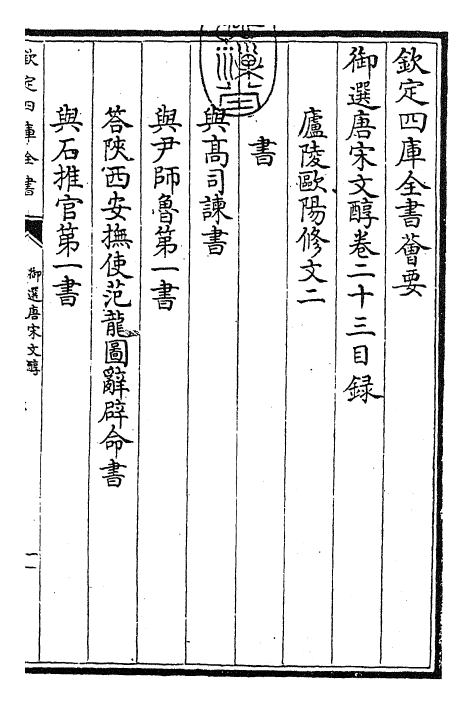 欽定四庫全書薈要
御選唐宋文醇卷二十三目録
廬陵歐陽修文二
書
與高司諫書
與尹師魯第一書
答陝西安撫使范龍圖辭辟命書
與石推官第一書
欽定四庫全書
御選唐宋文醇
一